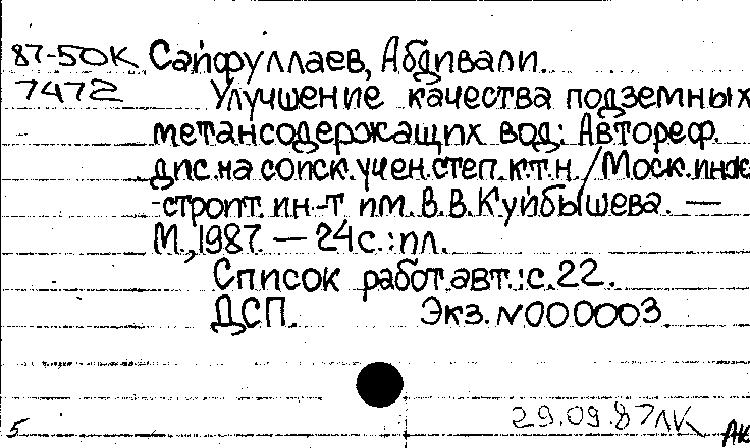 87-50К Сайфуллаев, Абдивали.
7472 Улучшение качества подземных
метансодержащих вод: Автореф.
дис. на соиск. учен. степ. к.т.н. / Моск. инж.
-строит. ин-т им. В.В. Куйбышева. —
М., 1987. — 24 с.: ил.
Список работ авт.: с. 22.
ДСП. Экз. N 000003
29.09.87 ЛК
5